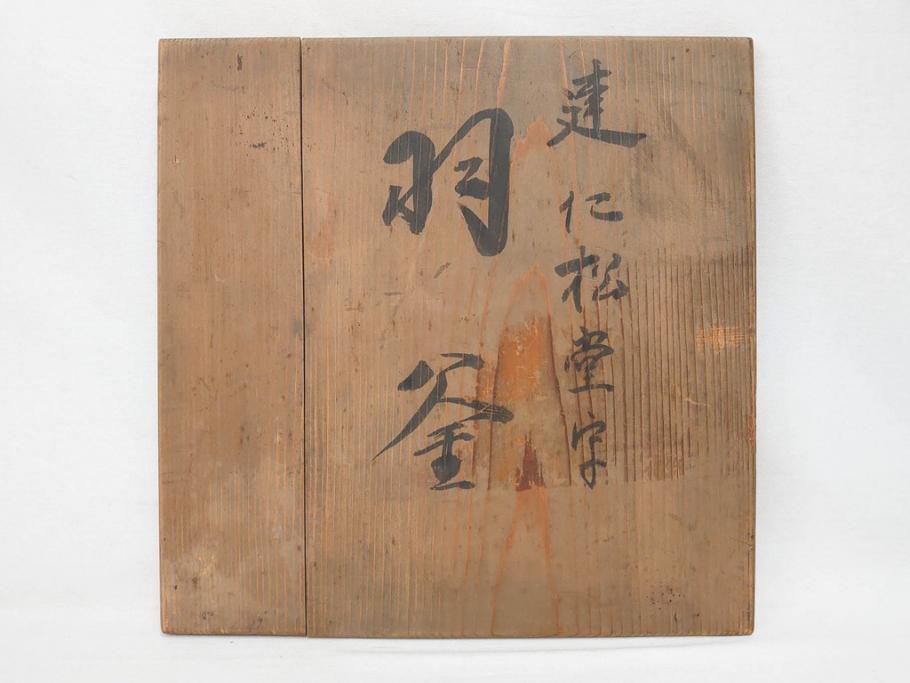 建仁松堂字
羽釜